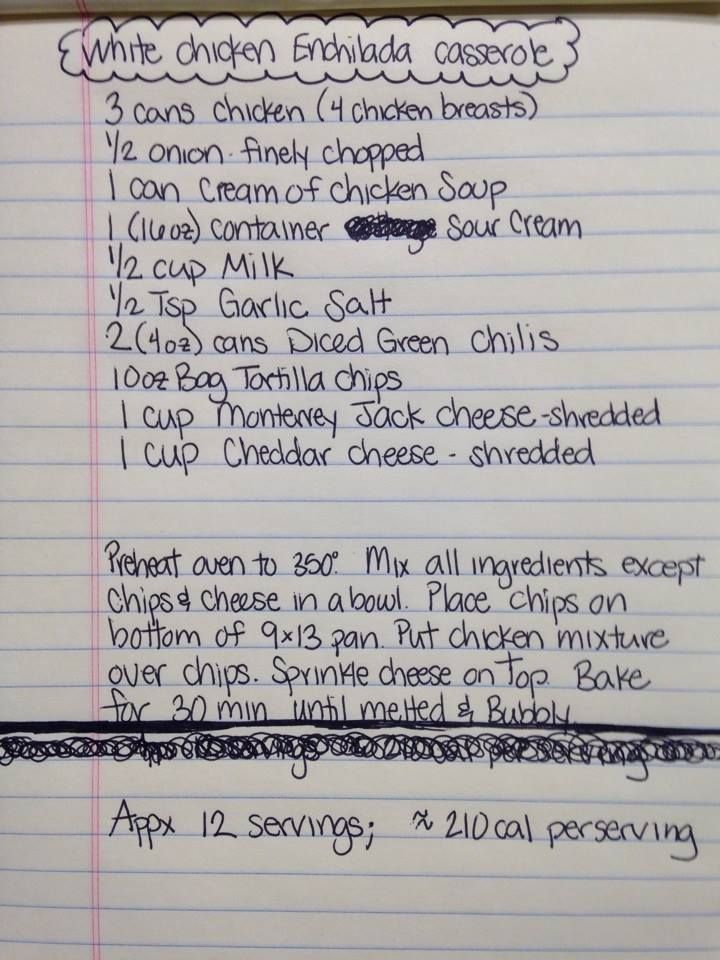 White chicken Enchilada casserole
3 cans chicken (4 chicken breasts)
1/2 onion - finely chopped
1 can Cream of chicken Soup
1 (16oz) container Sour Cream
1/2 cup Milk
1/2 Tsp Garlic Salt
2 (4oz) cans Diced Green Chilis
10oz Bag Tortilla Chips
1 cup Monterrey Jack cheese - shredded
1 cup Cheddar cheese - shredded
Preheat oven to 350°. Mix all ingredients except
chips & cheese in a bowl. Place chips on
bottom of 9x13 pan. Put chicken mixture
over chips. Sprinkle cheese on Top. Bake
for 30 min until melted & Bubbly.
Appx 12 servings; ≈ 210 cal perserving